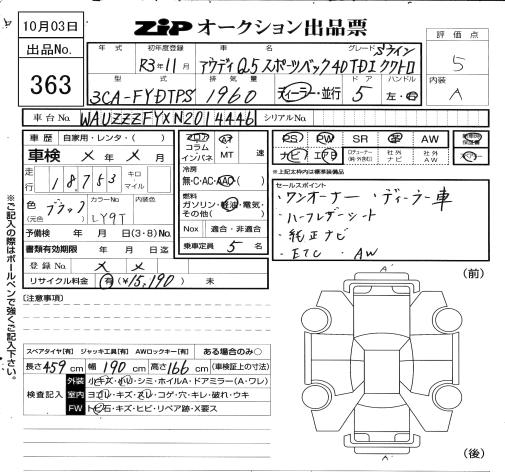 10月03日
ZIP オークション出品票
出品No.
363
年式
初年度登録
車名
グレード
Sライン
評価点
R3年11月
アウディ Q5 スポーツバック40TDI クワトロ
5
型式
排気量
ドア
ハンドル
内装
3CA-FYDTPS
1960
ディーラー・並行
5
左・右
A
車台No.
WAUZZZFYXN2014446
シリアルNo.
車歴
自家用・レンタ・( )
車検 メ年メ月
走行
18,753
キロ
マイル
色
(元色)
ブラック
カラーNo.
LY9T
内装色
予備検 年 月 日(3・8)No.
書類有効期限 年 月 日迄
登録No. メ メ
リサイクル料金 有(¥15,190) 未
フロア
コラム
インパネ
AT
MT
速
冷房
無・C・AC・AAC( )
燃料
ガソリン・軽油・電気・
その他( )
Nox 適合・非適合
乗車定員 5 名
PS PW SR AW
ナビ エアB
社外
ナビ
社外
AW
*上記太枠内は標準装備品
セールスポイント
・ワンオーナー ・ディーラー車
・ハーフレザーシート
・純正ナビ
・ETC ・AW
※ご記入の際はボールペンで強くご記入下さい。
[注意事項]
スペアタイヤ[有] ジャッキ工具[有] AWロックキー[有] ある場合のみ〇
長さ459cm 幅190cm 高さ166cm (車検証上の寸法)
検査記入
外装 小キズ・小凹・シミ・ホイルA・ドアミラー(A・ワレ)
室内 ヨゴレ・キズ・スレ・コゲ・穴・キレ・破れ・ウキ
FW トビ石・キズ・ヒビ・リペア跡・X要ス
(前)
A'
A'
(後)